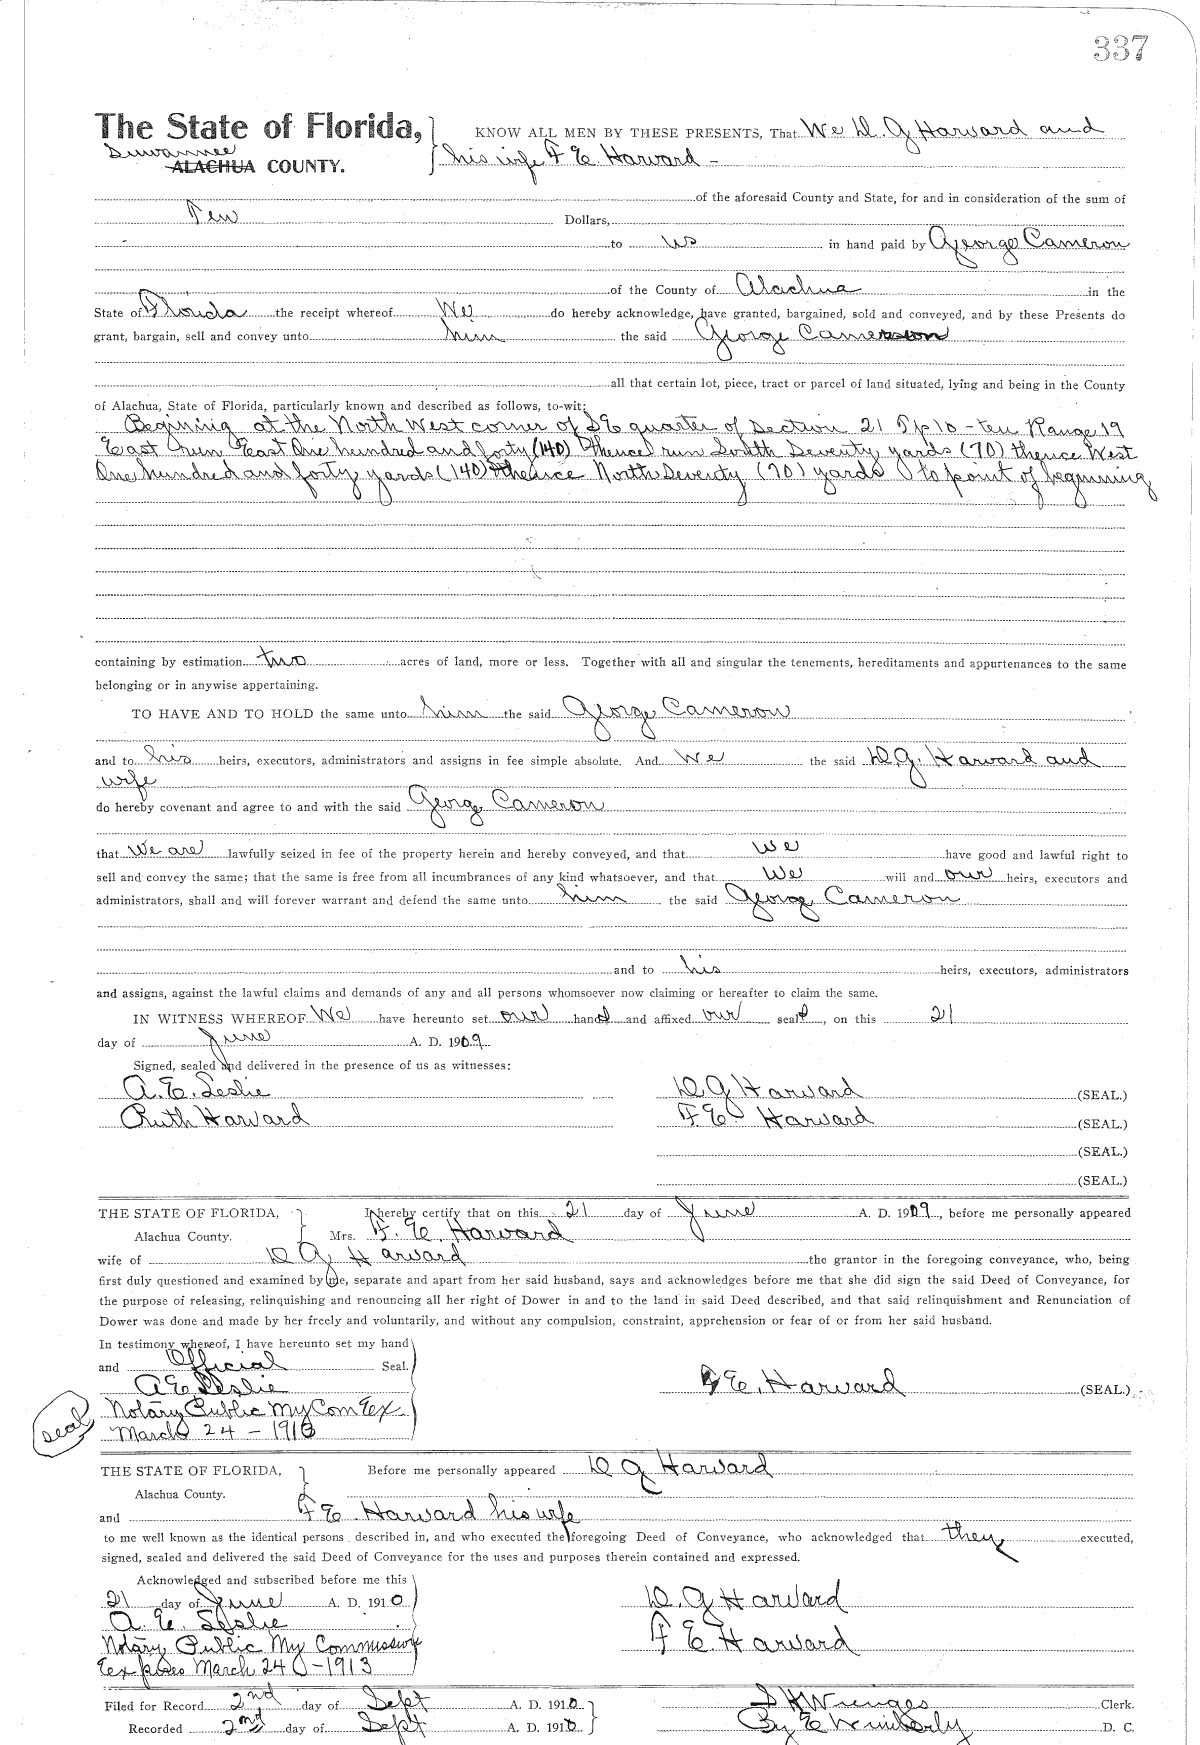 337
The State of Florida, KNOW ALL MEN BY THESE PRESENTS, That We D. G Harvard and
Suwannee
ALACHUA COUNTY. his wife F E Harvard -
of the aforesaid County and State, for and in consideration of the sum of
Ten Dollars,
- to us in hand paid by George Cameron
of the County of Alachua in the
State of Florida the receipt whereof We do hereby acknowledge, have granted, bargained, sold and conveyed, and by these Presents do
grant, bargain, sell and convey unto him the said George Cameron
all that certain lot, piece, tract or parcel of land situated, lying and being in the County
of Alachua, State of Florida, particularly known and described as follows, to-wit:
Begining at the North West corner of SE quarter of Section 21 Tp 10 - ten Range 19
East run East One hundred and forty (140) thence run South Seventy yards (70) thence West
One hundred and forty yards (140) thence North Seventy (70) yards to point of beginning
containing by estimation two acres of land, more or less. Together with all and singular the tenements, hereditaments and appurtenances to the same
belonging or in anywise appertaining.
TO HAVE AND TO HOLD the same unto him the said George Cameron
and to his heirs, executors, administrators and assigns in fee simple absolute. And We the said D. G. Harvard and
wife
do hereby covenant and agree to and with the said George Cameron
that We are lawfully seized in fee of the property herein and hereby conveyed, and that we have good and lawful right to
sell and convey the same; that the same is free from all incumbrances of any kind whatsoever, and that We will and our heirs, executors and
administrators, shall and will forever warrant and defend the same unto him the said George Cameron
and to his heirs, executors, administrators
and assigns, against the lawful claims and demands of any and all persons whomsoever now claiming or hereafter to claim the same.
IN WITNESS WHEREOF We have hereunto set our hand and affixed our seal, on this 21
day of June A. D. 1909.
Signed, sealed and delivered in the presence of us as witnesses:
A. E. Leslie D G Harvard (SEAL.)
Ruth Harvard F. E. Harvard (SEAL.)
(SEAL.)
(SEAL.)
THE STATE OF FLORIDA, I hereby certify that on this 21 day of June A. D. 1909, before me personally appeared
Alachua County. Mrs. F. E. Harvard
wife of D G Harvard the grantor in the foregoing conveyance, who, being
first duly questioned and examined by me, separate and apart from her said husband, says and acknowledges before me that she did sign the said Deed of Conveyance, for
the purpose of releasing, relinquishing and renouncing all her right of Dower in and to the land in said Deed described, and that said relinquishment and Renunciation of
Dower was done and made by her freely and voluntarily, and without any compulsion, constraint, apprehension or fear of or from her said husband.
In testimony whereof, I have hereunto set my hand
and Official Seal.
A E Leslie F E. Harvard (SEAL.)
seal Notary Public My Com Ex
March 24 - 1913
THE STATE OF FLORIDA, Before me personally appeared D G Harvard
Alachua County.
and F E Harvard his wife
to me well known as the identical persons described in, and who executed the foregoing Deed of Conveyance, who acknowledged that they executed,
signed, sealed and delivered the said Deed of Conveyance for the uses and purposes therein contained and expressed.
Acknowledged and subscribed before me this
21 day of June A. D. 1910 D. G Harvard
A. E. Leslie
Notary Public My Commission F E Harvard
Expires March 24 - 1913
Filed for Record 2nd day of Sept A. D. 1910 Clerk.
Recorded 2nd day of Sept A. D. 1910 By E Wimberly D. C.